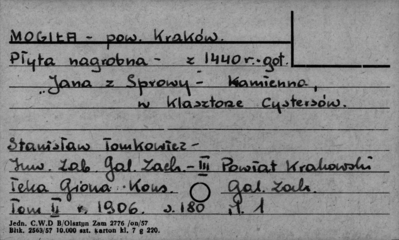 MOGIŁA - pow. Kraków.
Płyta nagrobna - z 1440 r. - got.
"Jana z Sprowy - Kamienna,
w Klasztorze Cystersów.
Stanisław Tomkowicz -
Inw. Zab. Gal. Zach. - III Powiat Krakowski
Teka Grona Kons. Gal. Zach.
Tom II r. 1906. s. 180 il. 1
Jedn. C.W.D B/Olsztyn Zam 2776 /on/57
Bibk. 2563/57 10.000 szt. karton kl. 7 g 220.